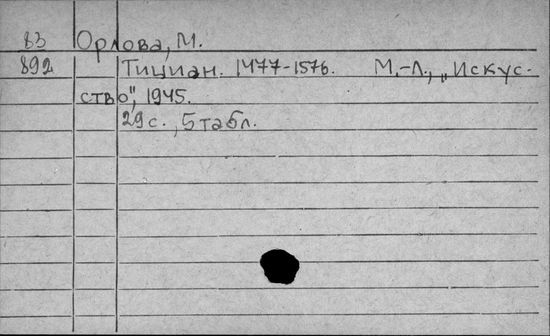 83 Орлова, М.
892 Тициан. 1477-1576. М.-Л., „Искус-
ство", 1945.
29 с., 5 табл.